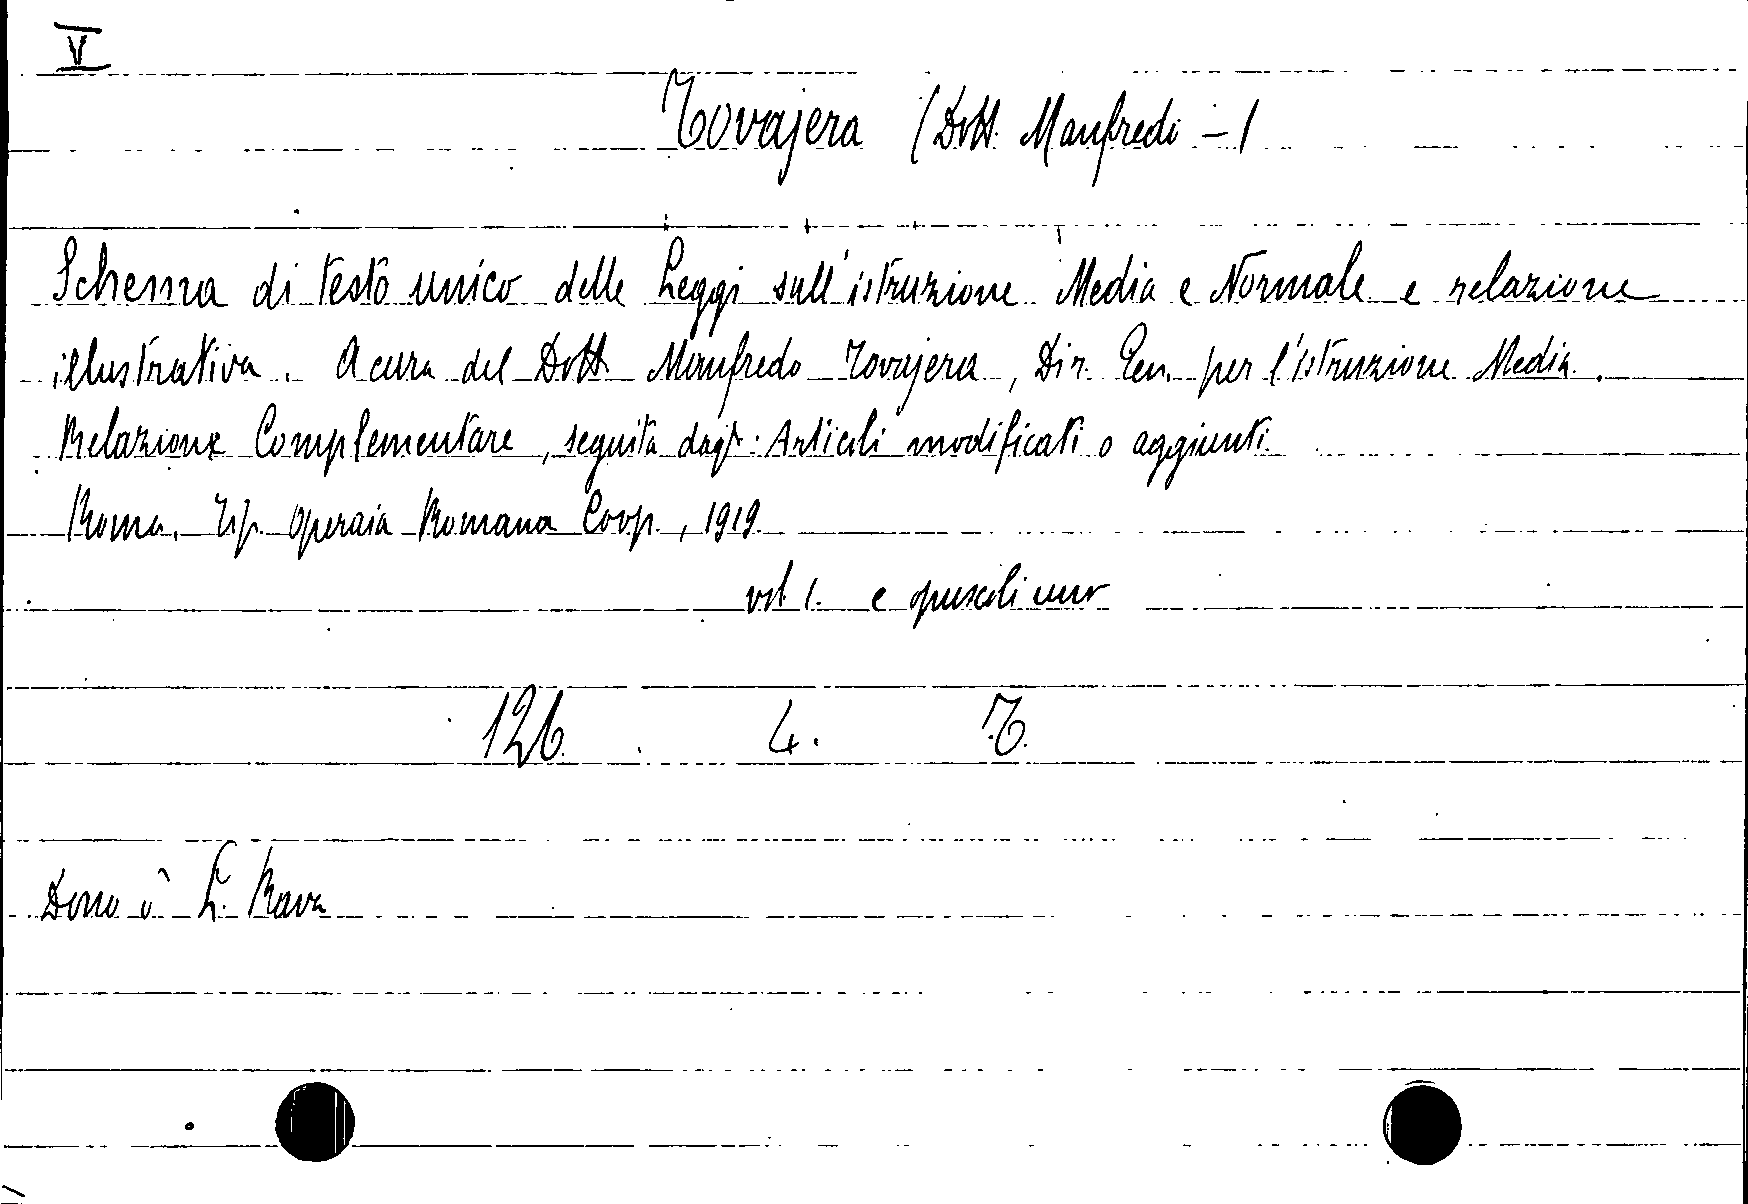 V
Tovajera (Dott. Manfredi -)
Schema di testo unico delle Leggi sull'istruzione Media e Normale e relazione
illustrativa. A cura del Dott. Manfredo Tovajera, Dir. Gen. per l'istruzione Media.
Relazione Complementare, seguita dagli: Articoli modificati o aggiunti.
Roma. Tip. Operaia Romana Coop., 1919.
vol 1. e opuscoli uno
126. 4. T.
Dono L. Rava